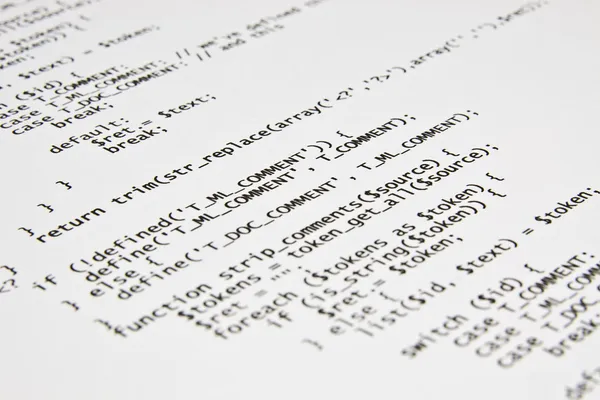 $token)) {
$token;
, $text) = $token;
($id) {
case T_COMMENT: // we've defined
case T_ML_COMMENT: // and this
case T_DOC_COMMENT:
break;
default:
$ret = $text;
break;
}
}
return trim(str_replace(array('<?' ,'?>'),array('',''),$ret));
}
?>
<?
if (!defined('T_ML_COMMENT')) {
define('T_ML_COMMENT', T_COMMENT);
} else {
define('T_DOC_COMMENT', T_ML_COMMENT);
}
function strip_comments($source) {
$tokens = token_get_all($source);
$ret = "";
foreach ($tokens as $token) {
if (is_string($token)) {
$ret = $token;
} else {
list($id, $text) = $token;
switch ($id) {
case T_COMMENT:
case T_ML_COMMENT
case T_DOC_
break